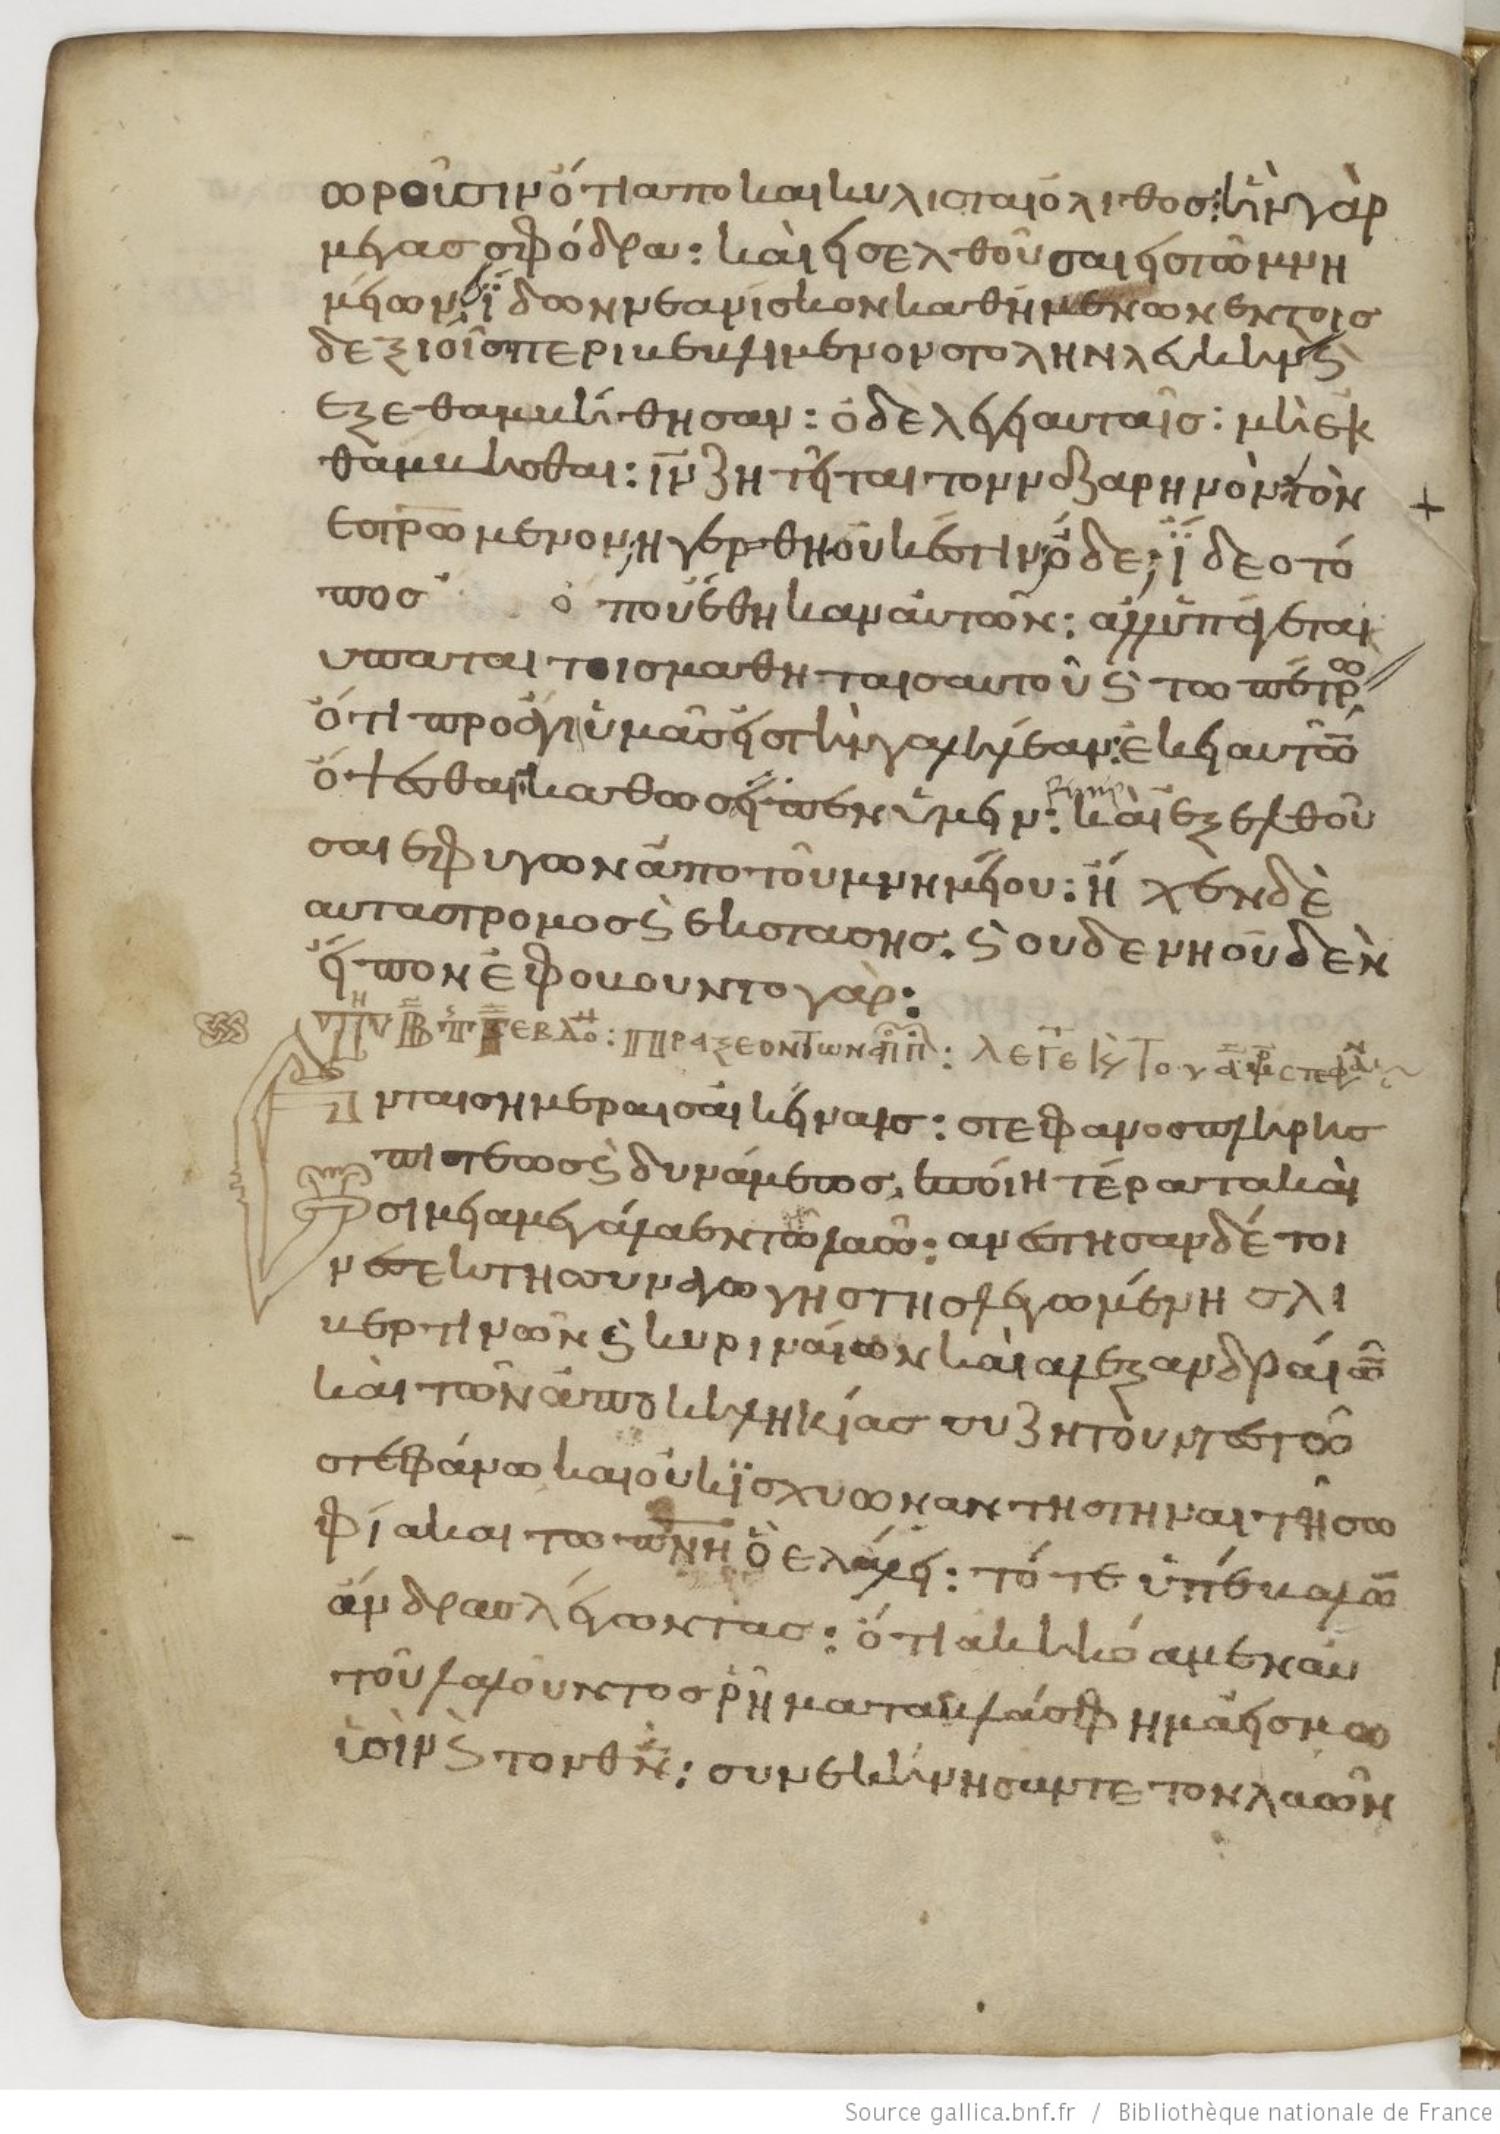 ωροῦσιν ὅτι αποκαικυλισται ὁ λιθοσ: ἦν γὰρ
μεγασ σφόδρα: καὶ εἰσελθοῦσαι εἰστῶ μνη
μείων: ἴδων νεανισκον καθήμενων εν τοισ
δεξιοῖσ περικεκλιμενον στολην λευκην ϛ̀
εξεθαμκήθησαν: ὁ δε λέγει αυταῖσ: μὴ ἐκ
θαμκησθαι: ιν ζητεῖται τον ναζαρηνὸν τὸν
εστρωμενον, ηγερθη οὔκ έστιν ὅδε, ἴδε ο τό
ποσ ὁ ποῦ ἔθηκαν ἀυτῶν: αλλ υπάγεται
υπαται τοισ μαθηταισ αυτοῦ ϛ̀ τω πέτρω
ὅτι προάγι ὑμᾶσ εἰστὴν γαλιλέαν: ἐκει αυτῶ
ὄψεσθαι: καθωσ εἴπεν ὑμειν: καὶ εξελθοῦ
σαι εφυγων ἀπο τοῦ μνημείου: ἤ χεν δὲ
αυτασ τρομοσ ϛ̀ εκστασησ. ϛ̀ ουδενη οὐδὲν
εἴπον ἐφοκουντο γάρ:
πραξεον των απ: λεγε Του
νταισ ημεραισ ἀικείναισ: στεφανοσ πληρησ
πιστεωσ ϛ̀ δυνάμεωσ, εποίη τέρατα καὶ
σιμεια μεγάλα εν τῶ λαῶ: ανεστησαν δέ τοι
νεσ εκ τησ συναγωγησ τησ λεγωμένησ λι
κερτινῶν ϛ̀ κυριναίων καὶ αλεξανδραίων
καὶ τῶν ἀπὸ κηληκίασ συζητοῦντεσ τῶ
στέφάνω και οὐκ ἴσχυων αντηστηναι τῆ σω
φία και τω πνη ὅ ελάλει: τότε ὑπέκαλων
ἄνδρασ λέγωντασ: ὅτι ακηκόαμεν αυ
τοῦ λαλοῦντοσ ρήματα κλάσφημα εἰσ μω
ϊσὶν ϛ̀ τον θν: συνεκίνησαν τε τον λαῶν
Source gallica.bnf.fr / Bibliothèque nationale de France